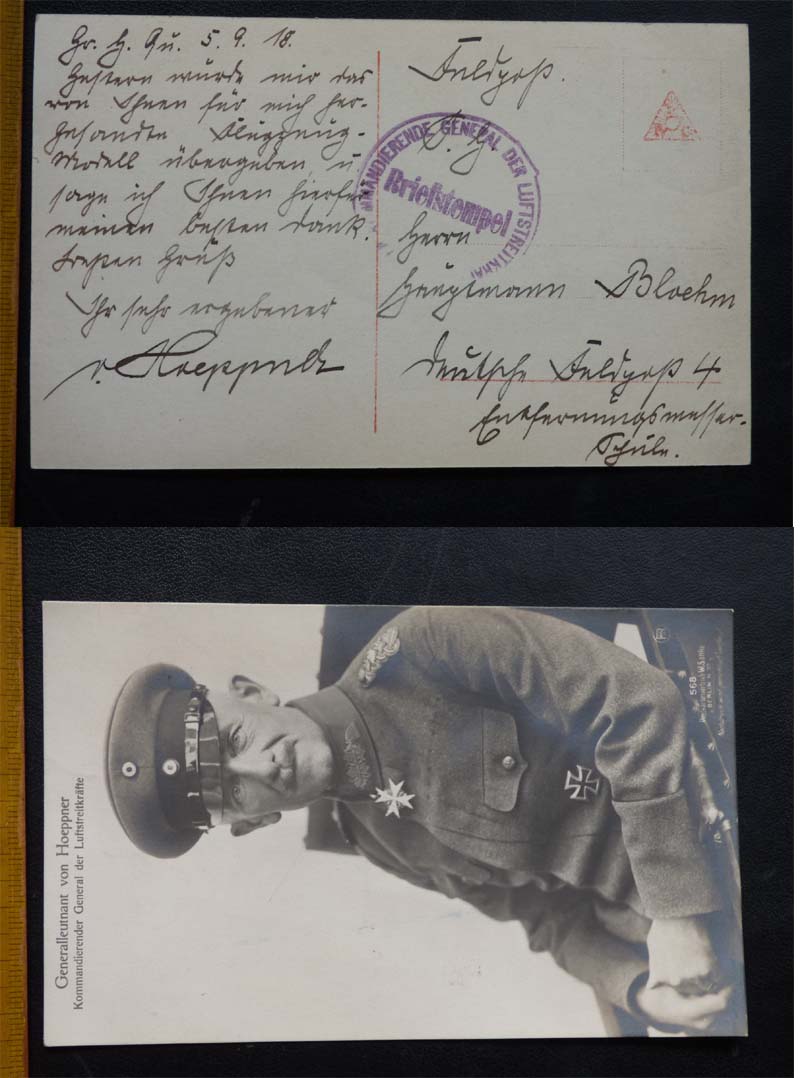 Gr. H. Qu. 5. 9. 18.
Gestern wurde mir das
von Ihnen für mich her-
gesandte Flugzeug-
Modell übergeben u.
sage ich Ihnen hierfür
meinen besten Dank.
Besten Gruß
Ihr sehr ergebener
v. Hoeppner
Feldpost.
KOMMANDIERENDE GENERAL DER LUFTSTREITKRÄ
Briefstempel
Herrn
Hauptmann Bloehm
Deutsche Feldpost 4
Entfernungsmesser-
Schule.
Generalleutnant von Hoeppner
Kommandierender General der Luftstreitkräfte
568
BERLIN